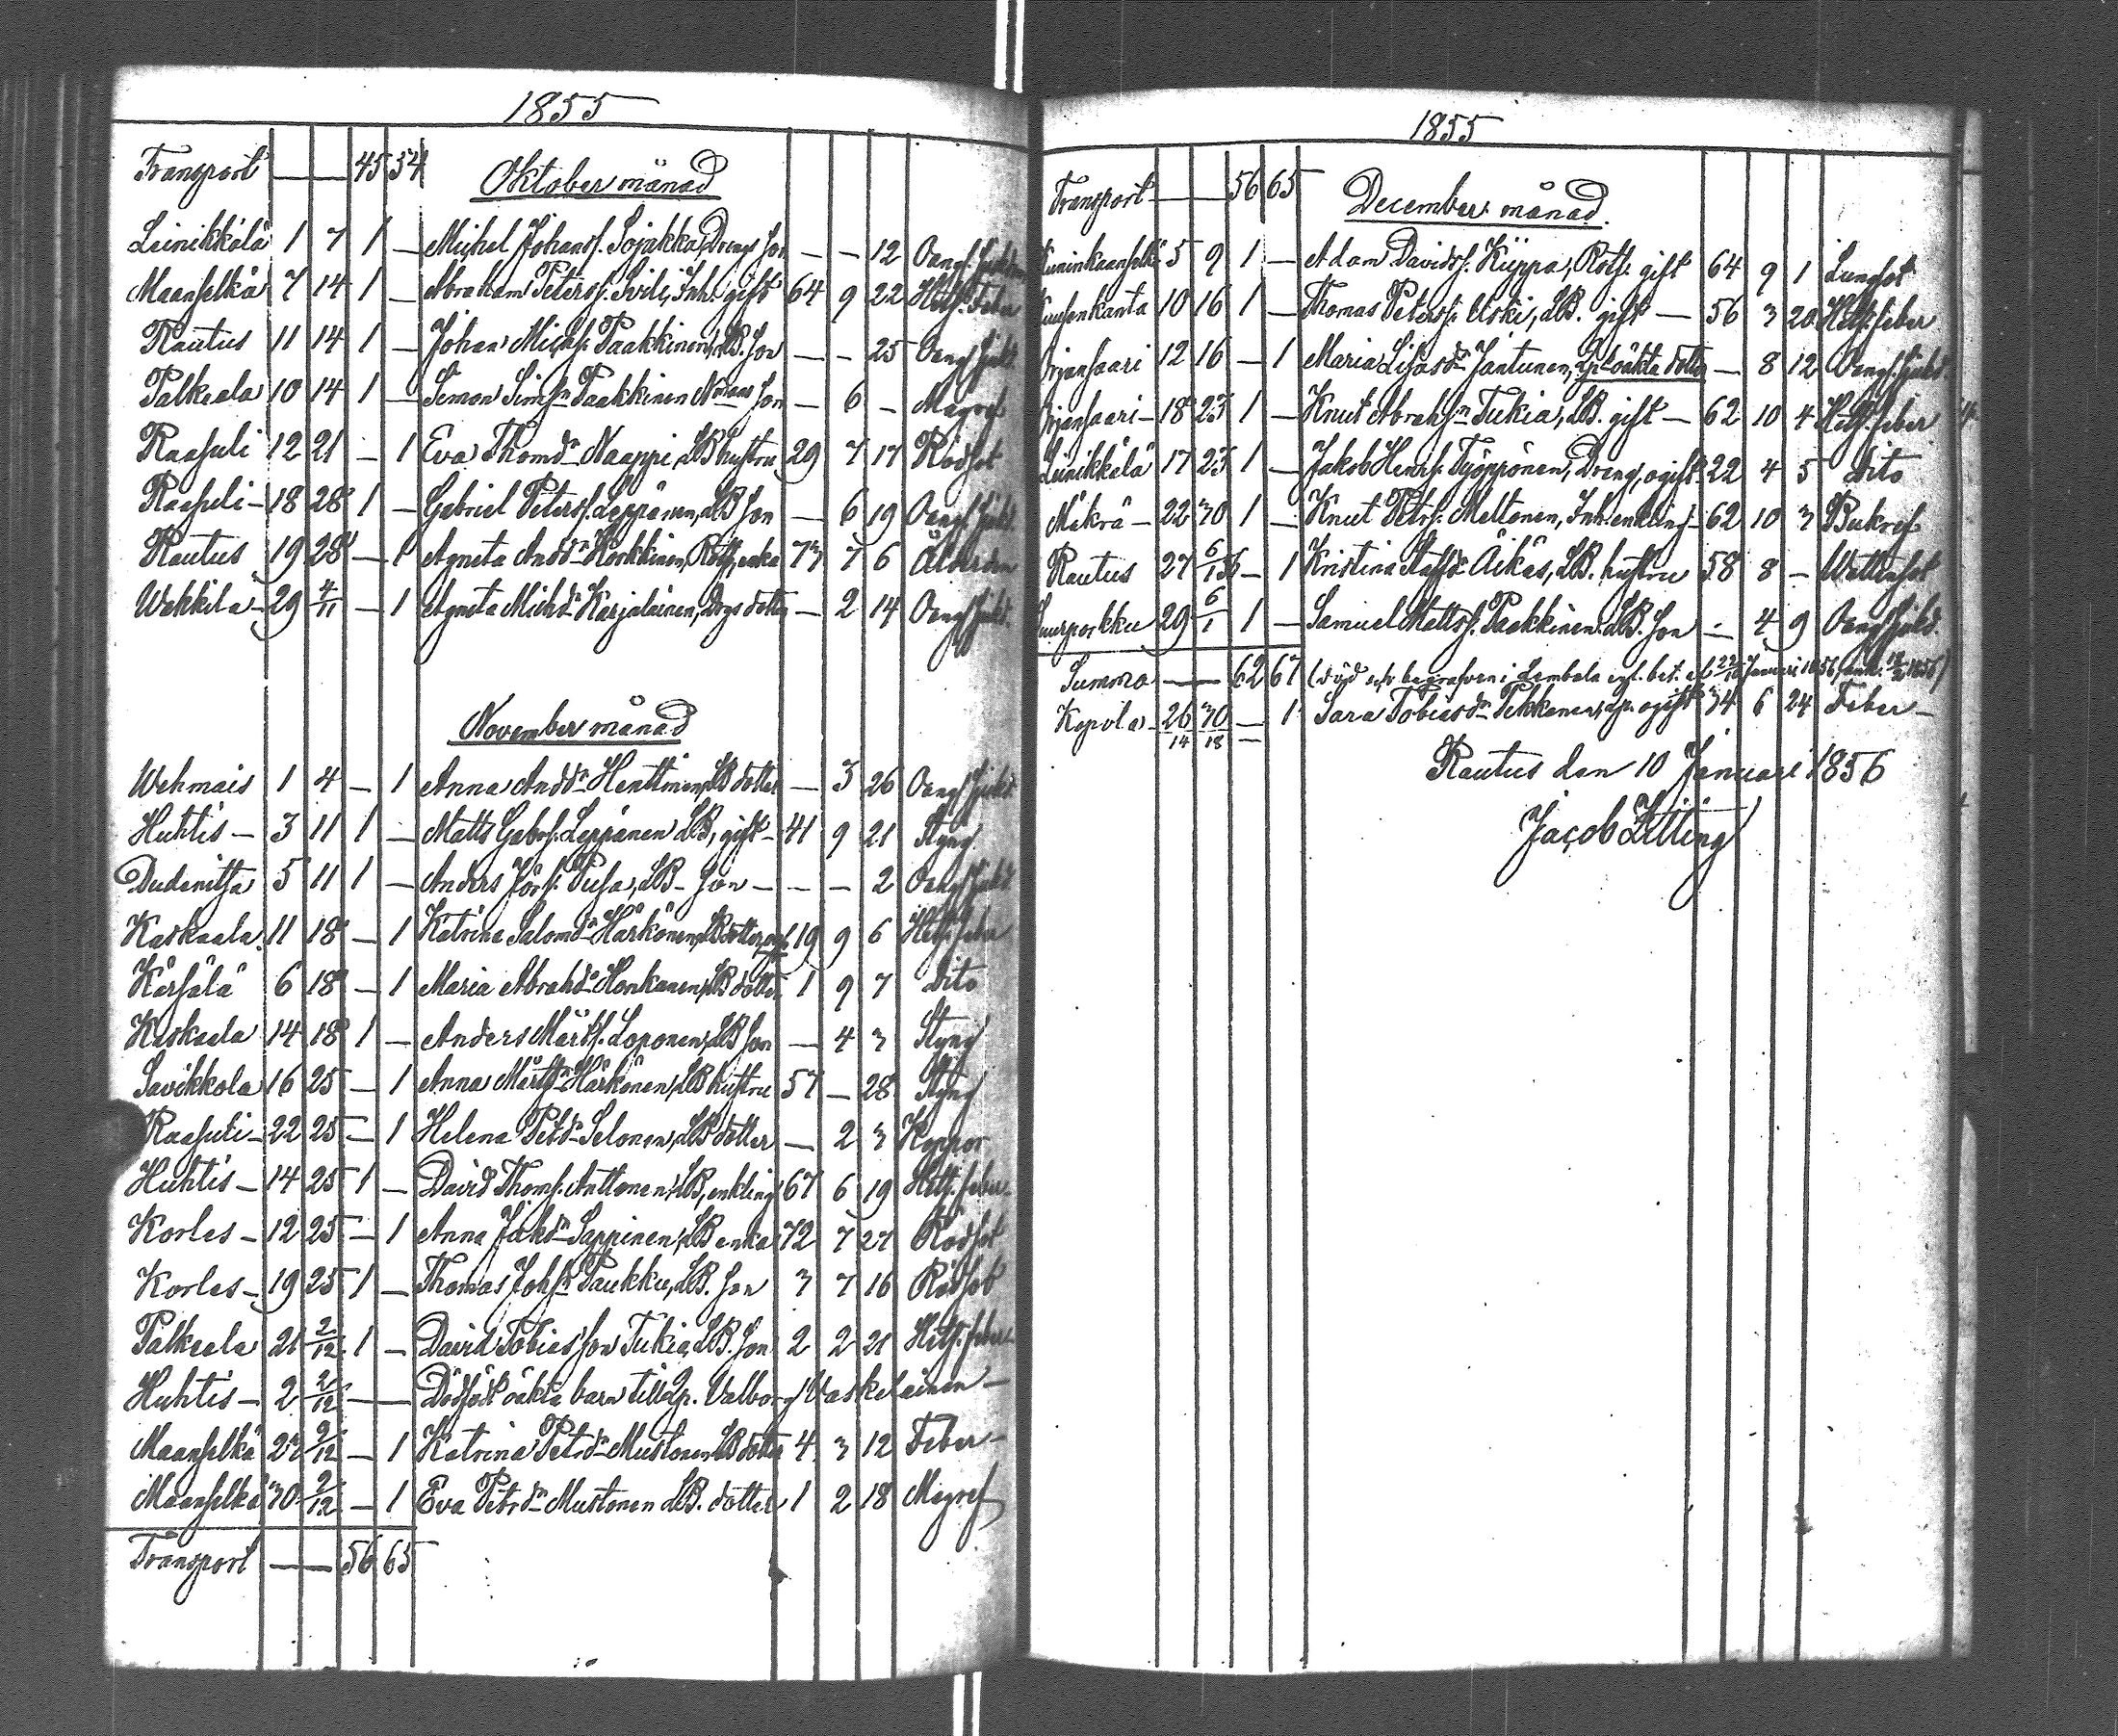 1855
Transport — — 45 54 Oktober månad
Leinikkälä 1 7 1 — Michel Johans f. Sojakka, Drengs son — — 12 Oang. sjukd.
Maanselkä 7 14 1 — Abraham Petersf. Sirli, Inh. gift 64 9 22 Hets. Feber
Rautus 11 14 1 — Johan Michsf. Paakkinen, LB. son — — 25 Oang. sjukd.
Palkeala 10 14 1 — Simon Simsn Paakkinen Ndmans son — 6 — Magref
Raasuli 12 21 — 1 Eva Thomdr Naappi, LB hustru 29 7 17 Rödsot
Raasuli — 18 28 1 — Gabriel Petersf. Leppänen, LB son — 6 19 Oang. sjukd.
Rautus 19 28 — 1 Agneta Andsdr Korkkinen, Roth. enka 73 7 6 Ålderdom
Wekkilä — 29 4/11 — 1 Agneta Michdr Karjalainen, Drgs dotter — 2 14 Oang. sjukd.
November månad
Wehmais 1 4 — 1 Anna Andsdr Henttinen, LB dotter — 3 26 Oang. sjukd.
Huhtis — 3 11 1 — Matts Gabrsf. Leppänen LB, gift — 41 9 21 Styng
Dudenitsa 5 11 1 — Anders Jörsf. Pusa, LB — son — — — 2 Oang. sjukd.
Kaskaala 11 18 — 1 Katrina Salomdr Härkönen, LB dotter, ogf. 19 9 6 Hets. feber
Kärsälä 6 18 — 1 Maria Abrahdr Honkanen, LB dotter 1 9 7 Dito
Kaskaala 14 18 1 — Anders Märtsf. Loponen, LB son — 4 3 Styng
Savikkola 16 25 — 1 Anna Märtsdr Härkönen, LB hustru 57 — 28 Styng
Raasuli — 22 25 — 1 Helena Petdr Selonen, LB dotter — 2 3 Koppor
Huhtis — 14 25 1 — David Thomsf. Anttonen, LB, enkling 67 6 19 Hets. feber
Korles — 12 25 — 1 Anna Jakdr Sappinen, LB enka 72 7 27 Rödsot
Korles — 19 25 1 — Thomas Johsn Paukku, LB. son 3 7 16 Rödsot
Palkeala 21 2/12 1 — David Tobias son Tukia, LB. son 2 2 21 Hets. feber
Huhtis — 2 2/12 — — Dödfödt oäkta barn till Qp. Valborg Vaskelainen —
Maanselkä 23 2/12 — 1 Katrina Petsdr Mustonen, LB dotter 4 3 12 Feber —
Maanselkä 30 2/12 — 1 Eva Petrdr Mustonen LB. dotter 1 2 18 Magref
Transport — — 56 65
1855
Transport — — 56 65 December månad.
Kuninkaanselkä 5 9 1 — Adam Davidsf. Kiippa, Roth. gift 64 9 1 Lungsot
Kuusenkanta 10 16 1 — Thomas Petersf. Uski, LB. gift — 56 3 20 Hets. feber
Orjansaari 12 16 — 1 Maria Lisas dr Jantunen, Qps oäkta dotter — 8 12 Oang. sjukd.
Orjansaari — 18 23 1 — Knut Abrahsn Tukia, LB. gift — 62 10 4 Hets. feber
Leinikkälä 17 23 1 — Jakob Henrsf. Työppönen, Dreng, ogift 22 4 5 Dito
Mäkrä — 22 30 1 — Knut Petrsf. Meltonen, Inh. enkling — 62 10 3 Bukref
Rautus 27 6/1 56 — 1 Kristina Staffdr Äikäs, LB. hustru 58 8 — Wattusot
Suurporkku 29 6/1 1 — Samuel Mattsf. Paakkinen LB. son — 4 9 Oang. sjukd.
Summa — — 62 67 (död och begrafven i Lembala enl. bet. af 22/10 Januari 1856
Kopola — 26/14 30/18 — 1 Sara Tobias dr Pekkonen, qp. ogift 34 6 24 Feber —
Rautus den 10 Januari 1856
Jacob Zilling